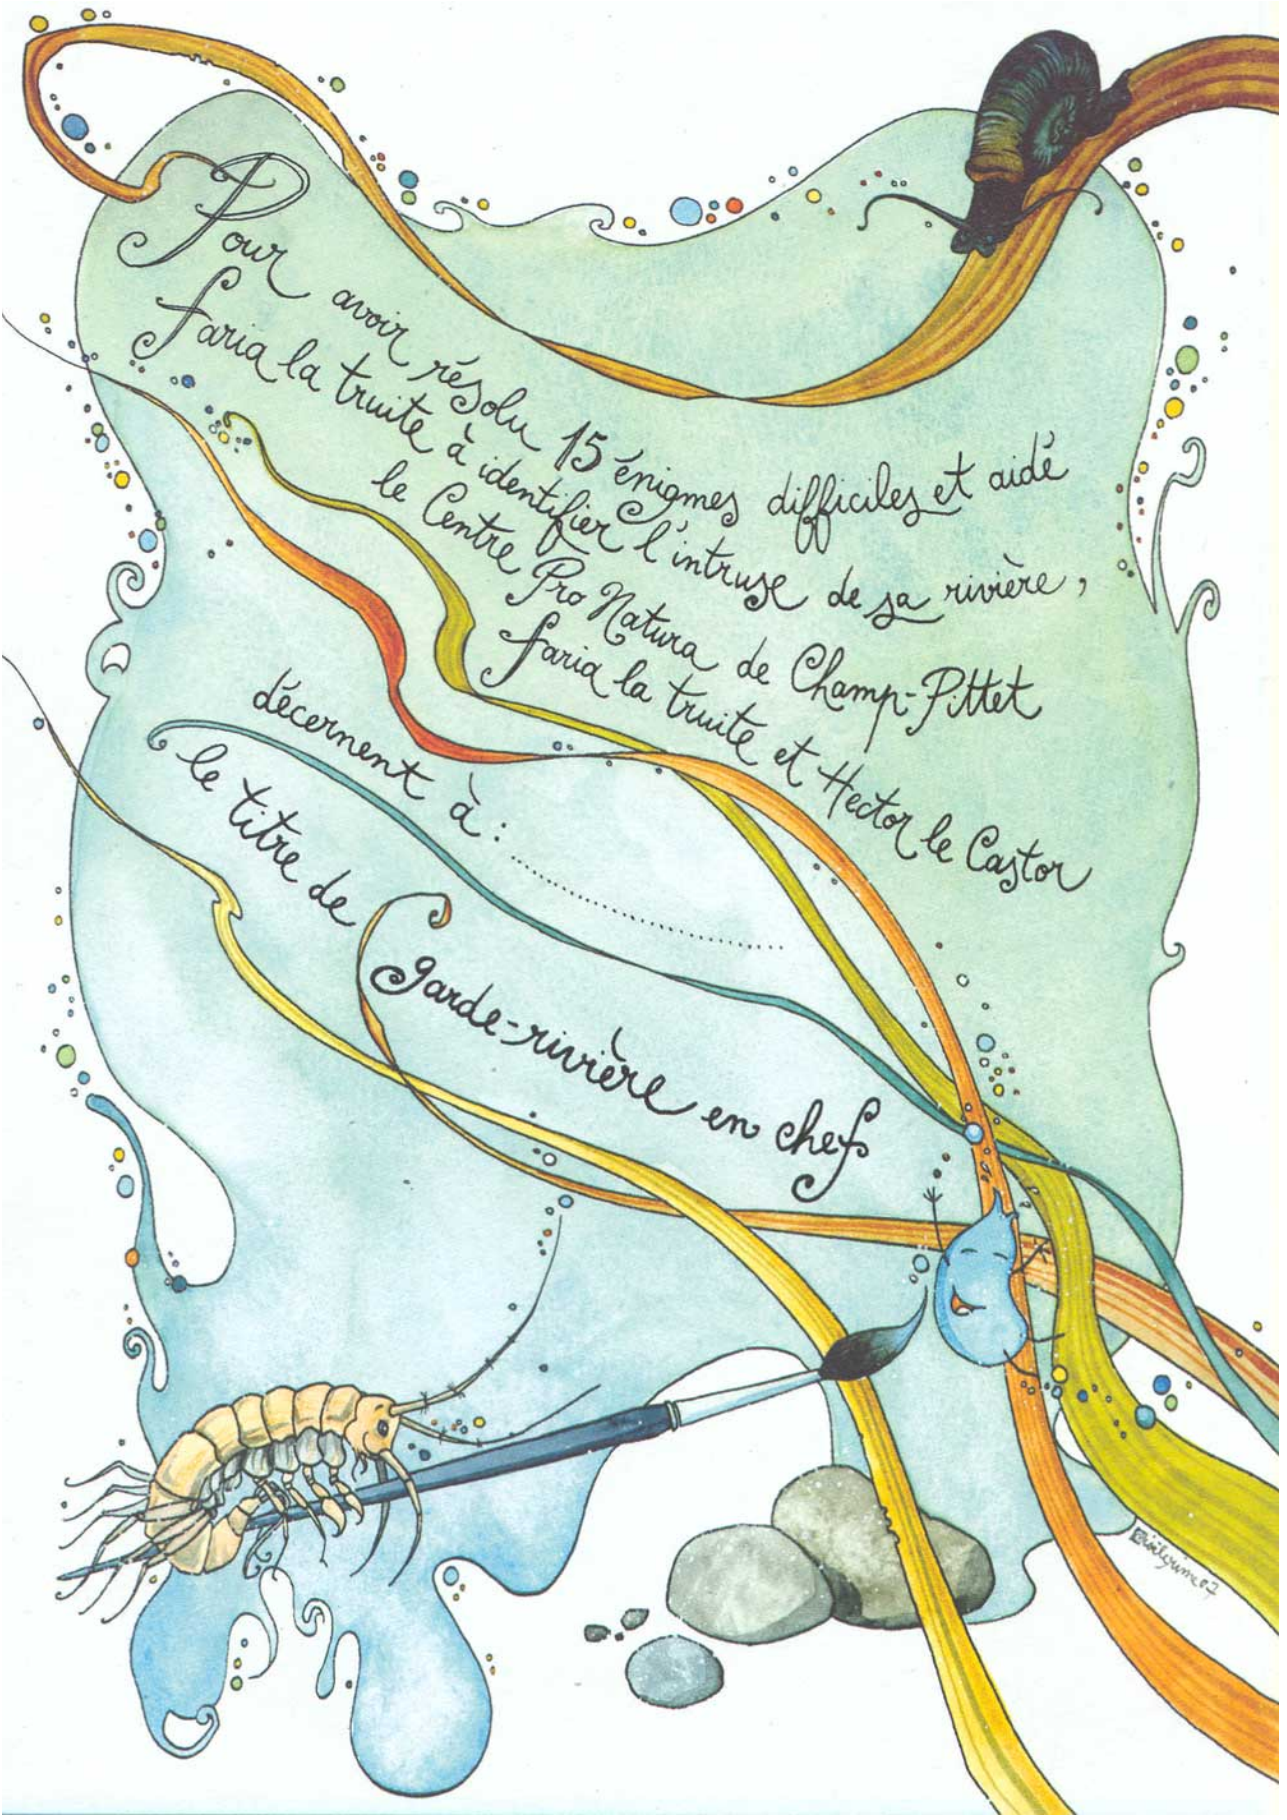 Pour avoir résolu 15 énigmes difficiles et aidé
faria la truite à identifier l'intruse de sa rivière,
le Centre Pro Natura de Champ-Pittet
faria la truite et Hector le Castor
décernent à : ....................................
le titre de
garde-rivière en chef